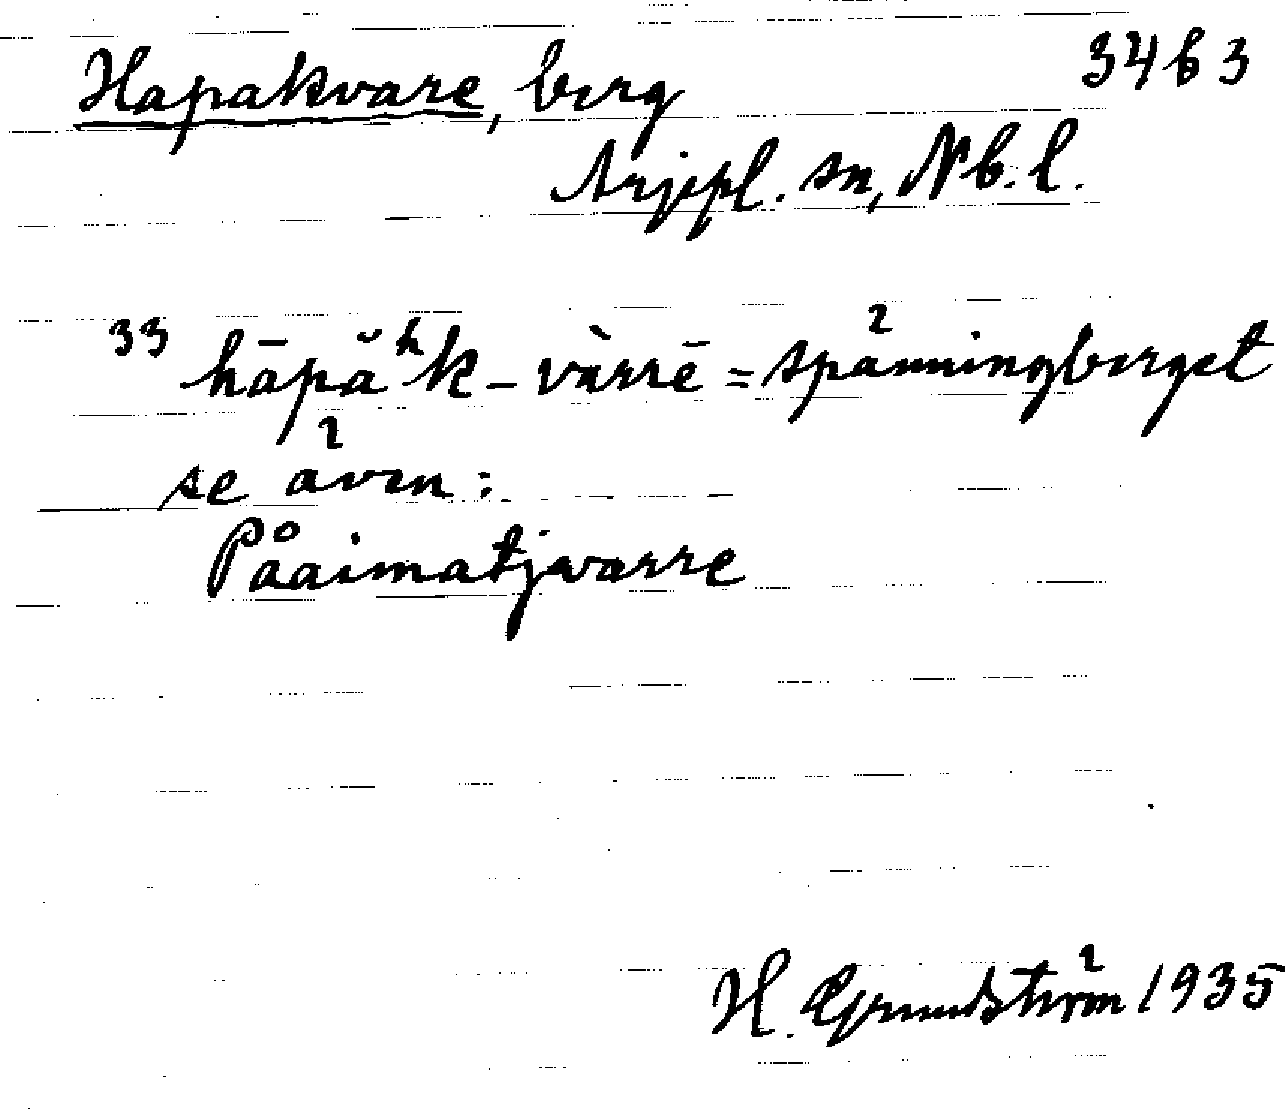 Hapakvare, berg 3463
Arjepl. sn, Nb. l.
33 hāpă ʰk - vàrrē = spänningberget
se även:
Pååimatjvarre
H. Grundström 1935